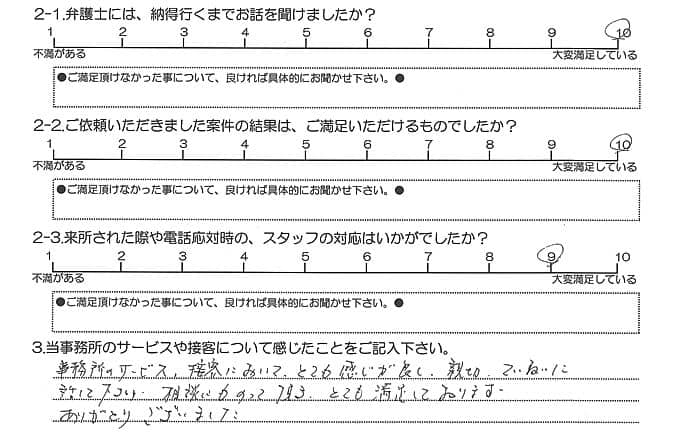 2-1.弁護士には、納得行くまでお話を聞けましたか?
1 2 3 4 5 6 7 8 9 10
不満がある 大変満足している
●ご満足頂けなかった事について、良ければ具体的にお聞かせ下さい。●
2-2.ご依頼いただきました案件の結果は、ご満足いただけるものでしたか?
1 2 3 4 5 6 7 8 9 10
不満がある 大変満足している
●ご満足頂けなかった事について、良ければ具体的にお聞かせ下さい。●
2-3.来所された際や電話応対時の、スタッフの対応はいかがでしたか?
1 2 3 4 5 6 7 8 9 10
不満がある 大変満足している
●ご満足頂けなかった事について、良ければ具体的にお聞かせ下さい。●
3.当事務所のサービスや接客について感じたことをご記入下さい。
事務所のサービス、接客において、とても感じが良く、親切、ていねいに
して下さり、相談にものって頂き、とても満足しております。
ありがとうございました